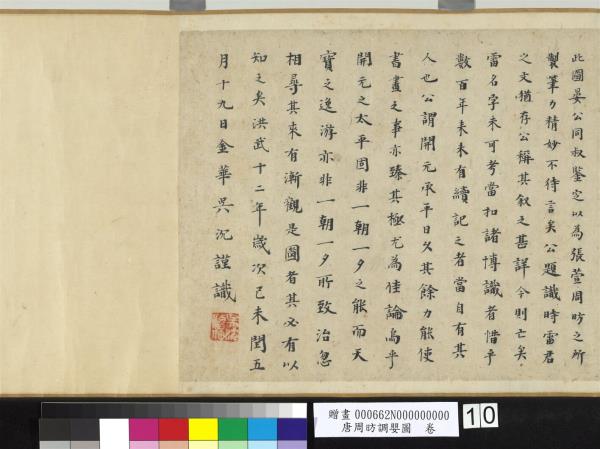 此圖晏公同叔鑒定以為張萱周昉之所
製筆力精妙不待言矣公題識時雷君
之文猶存公稱其敘之甚詳今則亡矣
雷名字未可考當扣諸博識者惜乎
數百年來未有續記之者當自有其
人也公謂開元承平日久其餘力能使
書畫之事亦臻其極尤為佳論烏乎
開元之太平固非一朝一夕之能而天
寶之逸游亦非一朝一夕所致治忽
相尋其來有漸觀是圖者其必有以
知之矣洪武十二年歲次己未閏五
月十九日金華吳沉謹識
贈畫 000662N000000000
唐周昉調嬰圖 卷
10